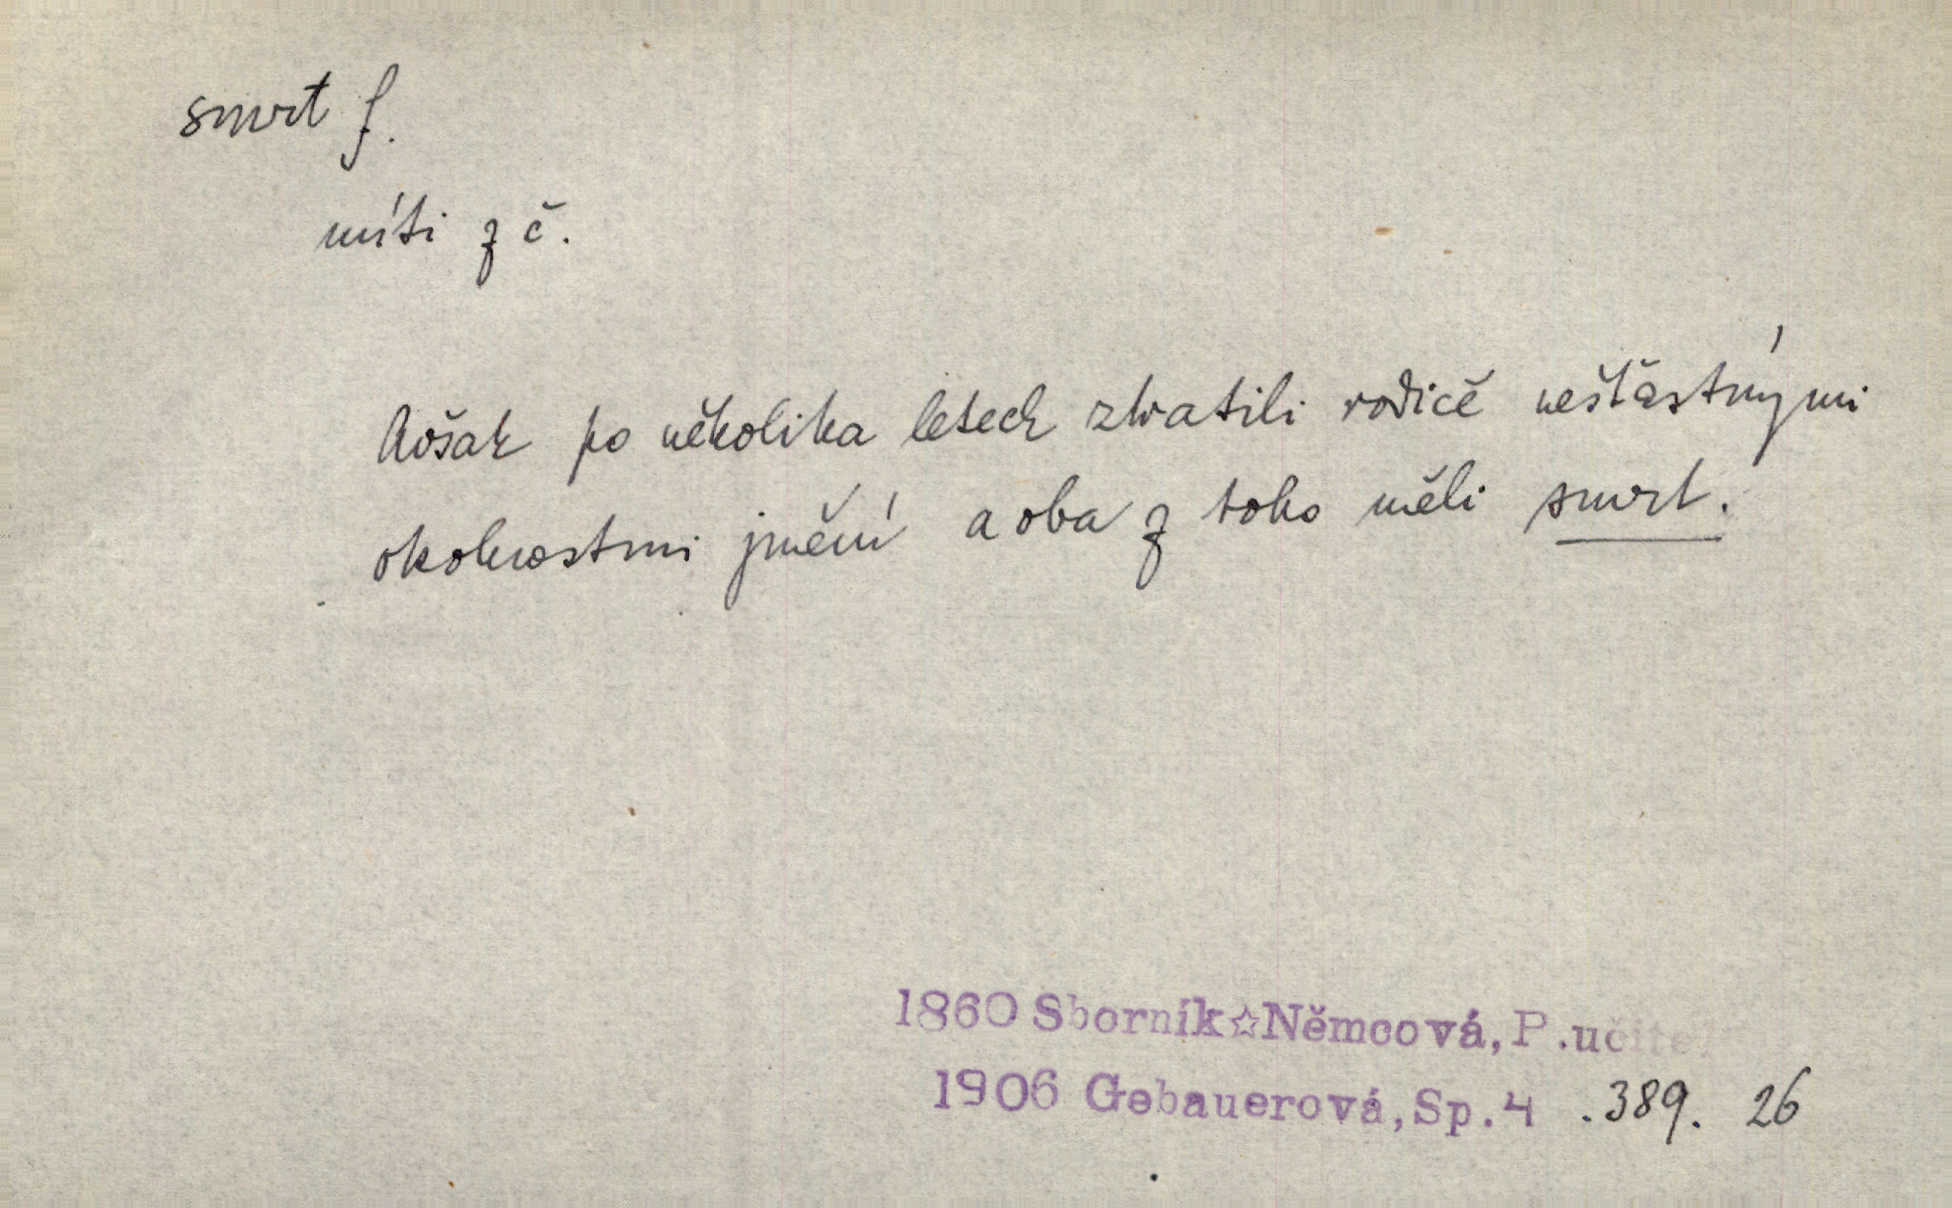 smrt f.
míti z č.
Avšak po několika letech ztratili rodiče nešťastnými
okolnostmi jmění a oba z toho měli smrt.
1860 Sborník☆Němcová, P.učitel
1906 Gebauerová, Sp.4 .389. 26